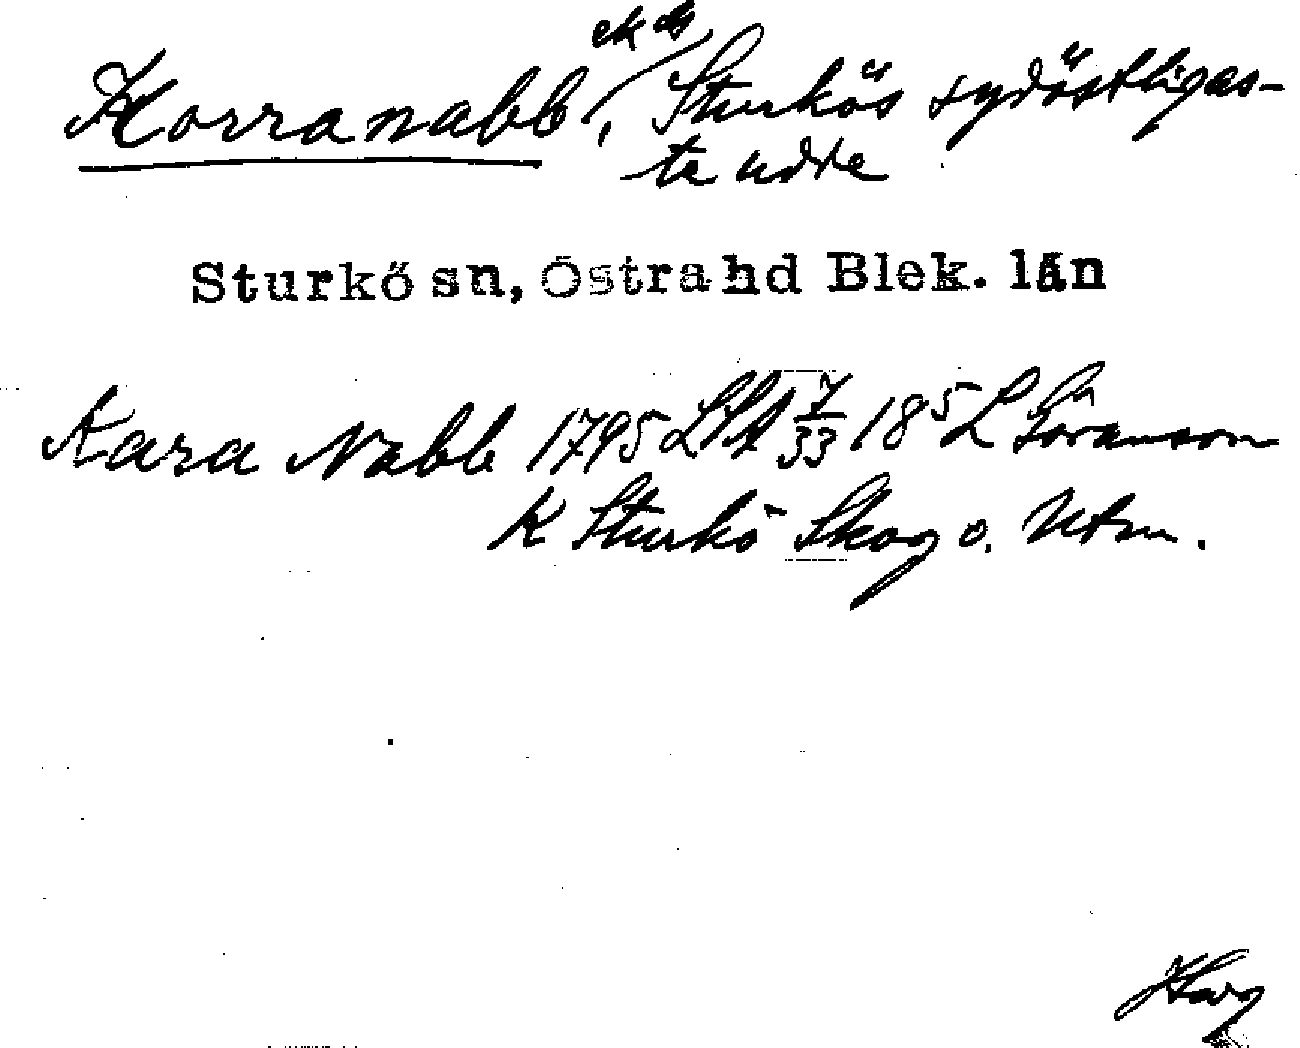 ek bl
Korranabb, Sturkös sydöstligas-
te udde
Sturkö sn, Östra hd Blek. län
Kara Nabb 1795 LSA 7/33 185 L Göranson
K Sturkö Skog o. Utm.